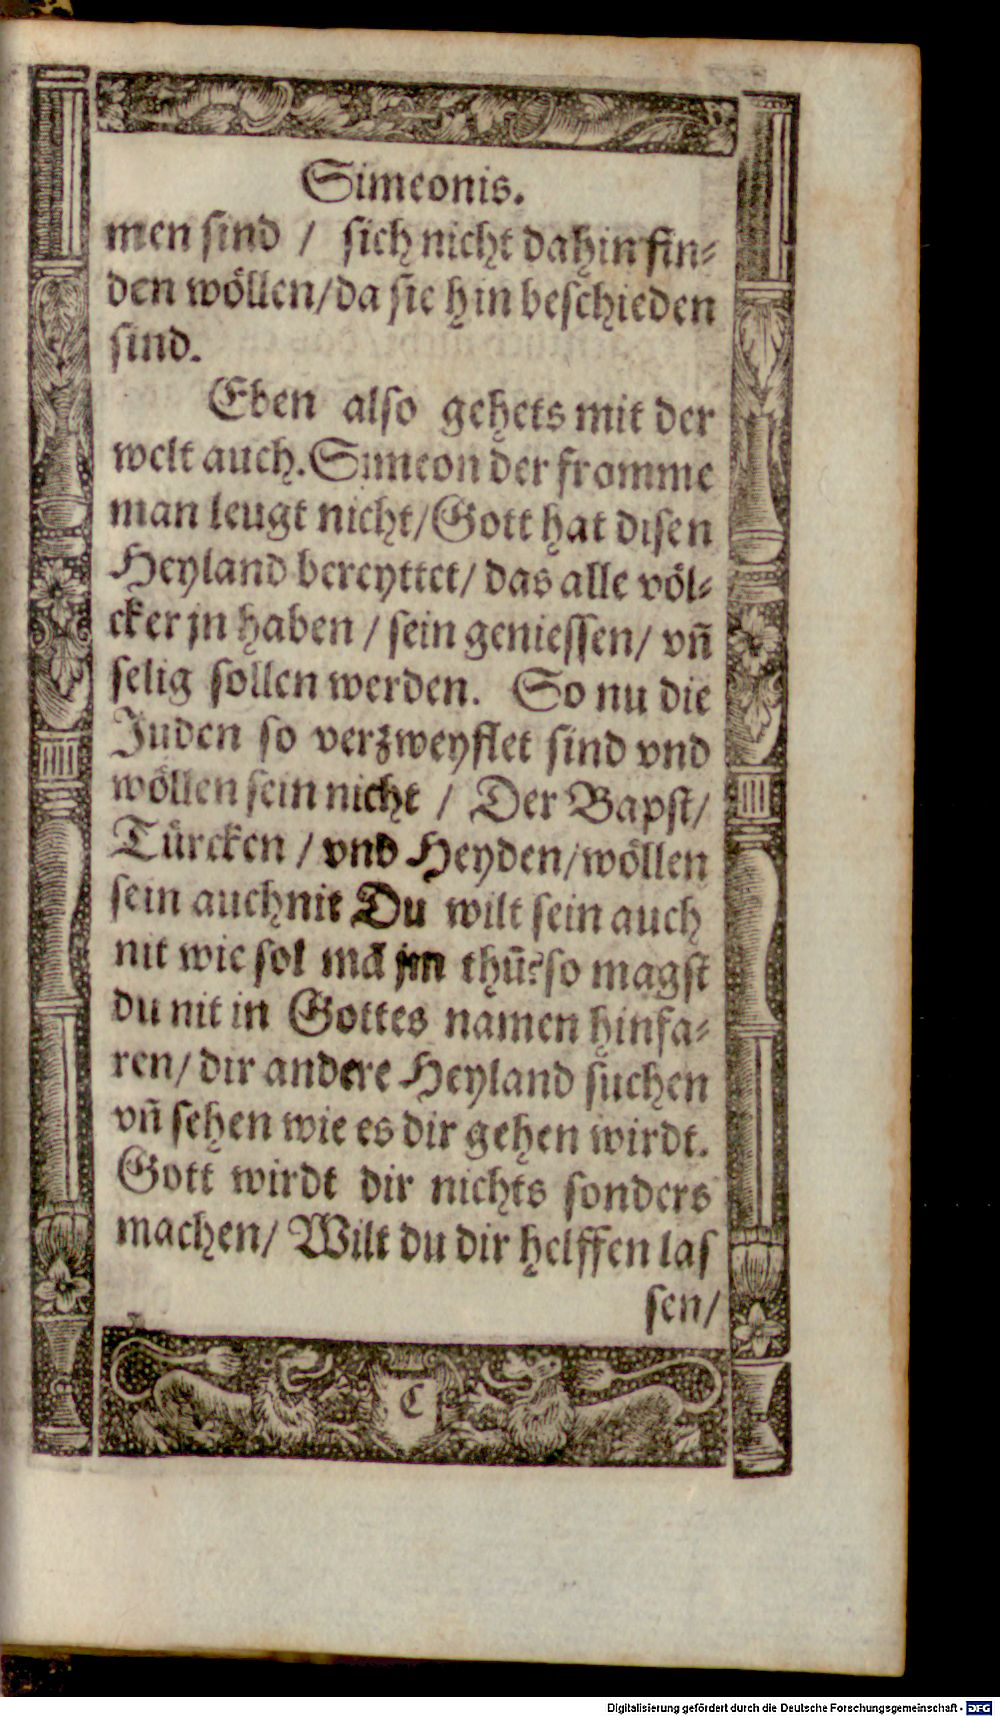 Simeonis.
men sind / sich nicht dahin fin⸗
den wöllen/da sie hin beschieden
sind.
Eben also gehets mit der
welt auch. Simeon der fromme
man leugt nicht/Gott hat disen
Heyland bereyttet/ das alle völ⸗
cker jn haben / sein geniessen/ vñ
selig sollen werden. So nu die
Juden so verzweyflet sind vnd
wöllen sein nicht / Der Bapst/
Türcken / vnd Heyden/wöllen
sein auch nit Du wilt sein auch
nit wie sol mã jm thũ? so magst
du nit in Gottes namen hinfa⸗
ren/ dir andere Heyland suchen
vñ sehen wie es dir gehen wirdt.
Gott wirdt dir nichts sonders
machen/ Wilt du dir helffen las
sen/
C
Digitalisierung gefördert durch die Deutsche Forschungsgemeinschaft - DFG